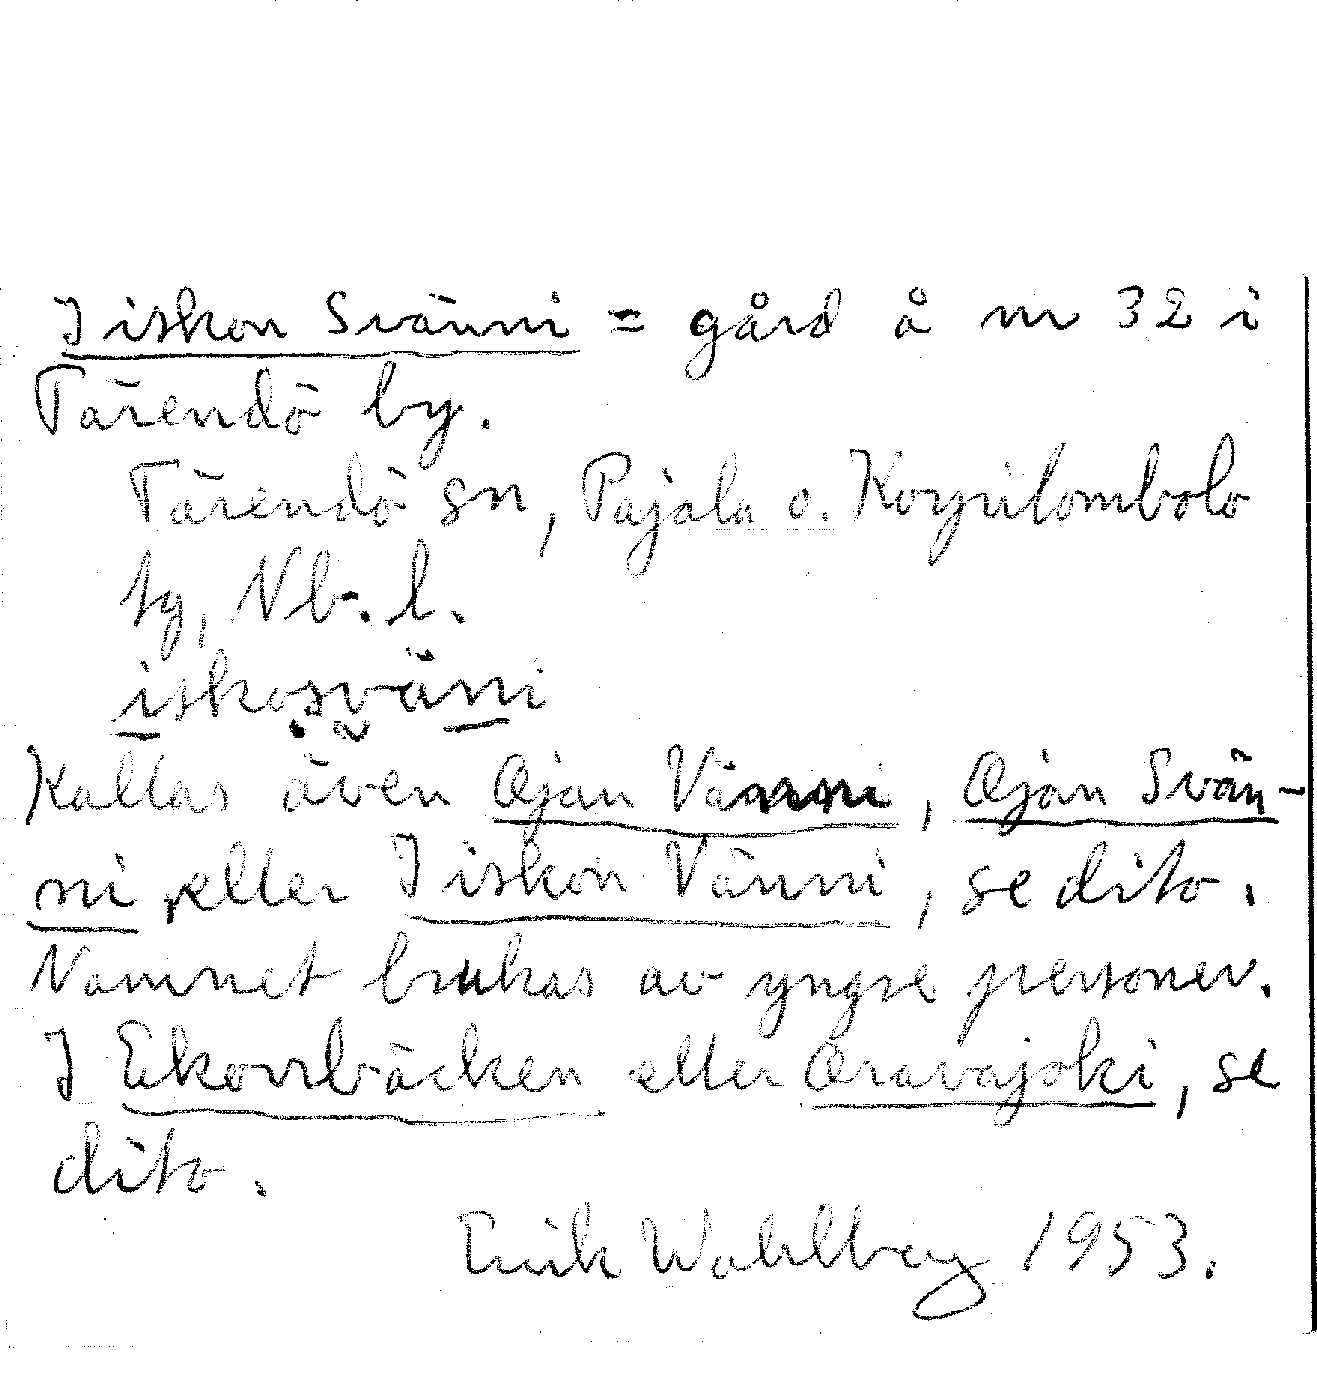 Iiskon Svänni = gård å nr 32 i
Tärendö by.
Tärendö sn, Pajala o. Korpilombolo
tg, Nb. l.
iskosväni
Kallas även Ojan Vänni, Ojan Svän-
ni, eller Iiskon Vänni, se dito.
Namnet brukas av yngre personer.
I Ekorrbäcken eller Oravajoki, se
dito.
Erik Wahlberg 1953.